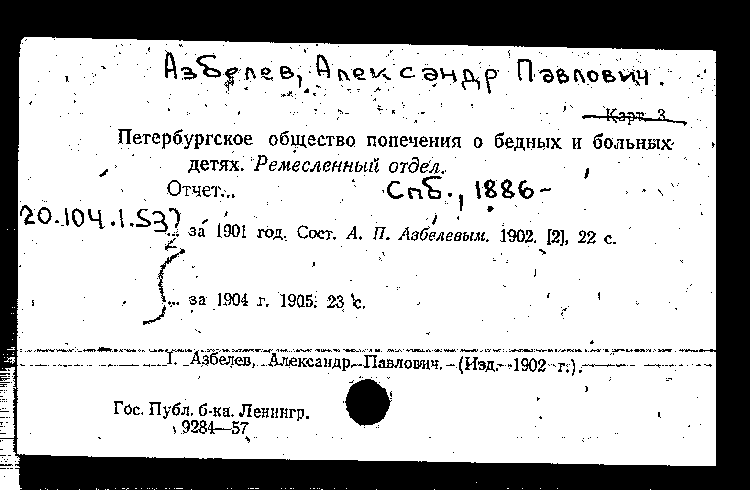 Азбелев, Александр Павлович.
Карт. 3
Петербургское общество попечения о бедных и больных
детях. Ремесленный отдел.
Отчет... Спб., 1886-
20.104.1.537
... за 1901 год. Сост. А. П. Азбелевым. 1902. [2], 22 с.
... за 1904 г. 1905. 23 с.
I. Азбелев, Александр Павлович. (Изд. 1902 г.).
Гос. Публ. б-ка. Ленингр.
9284—57